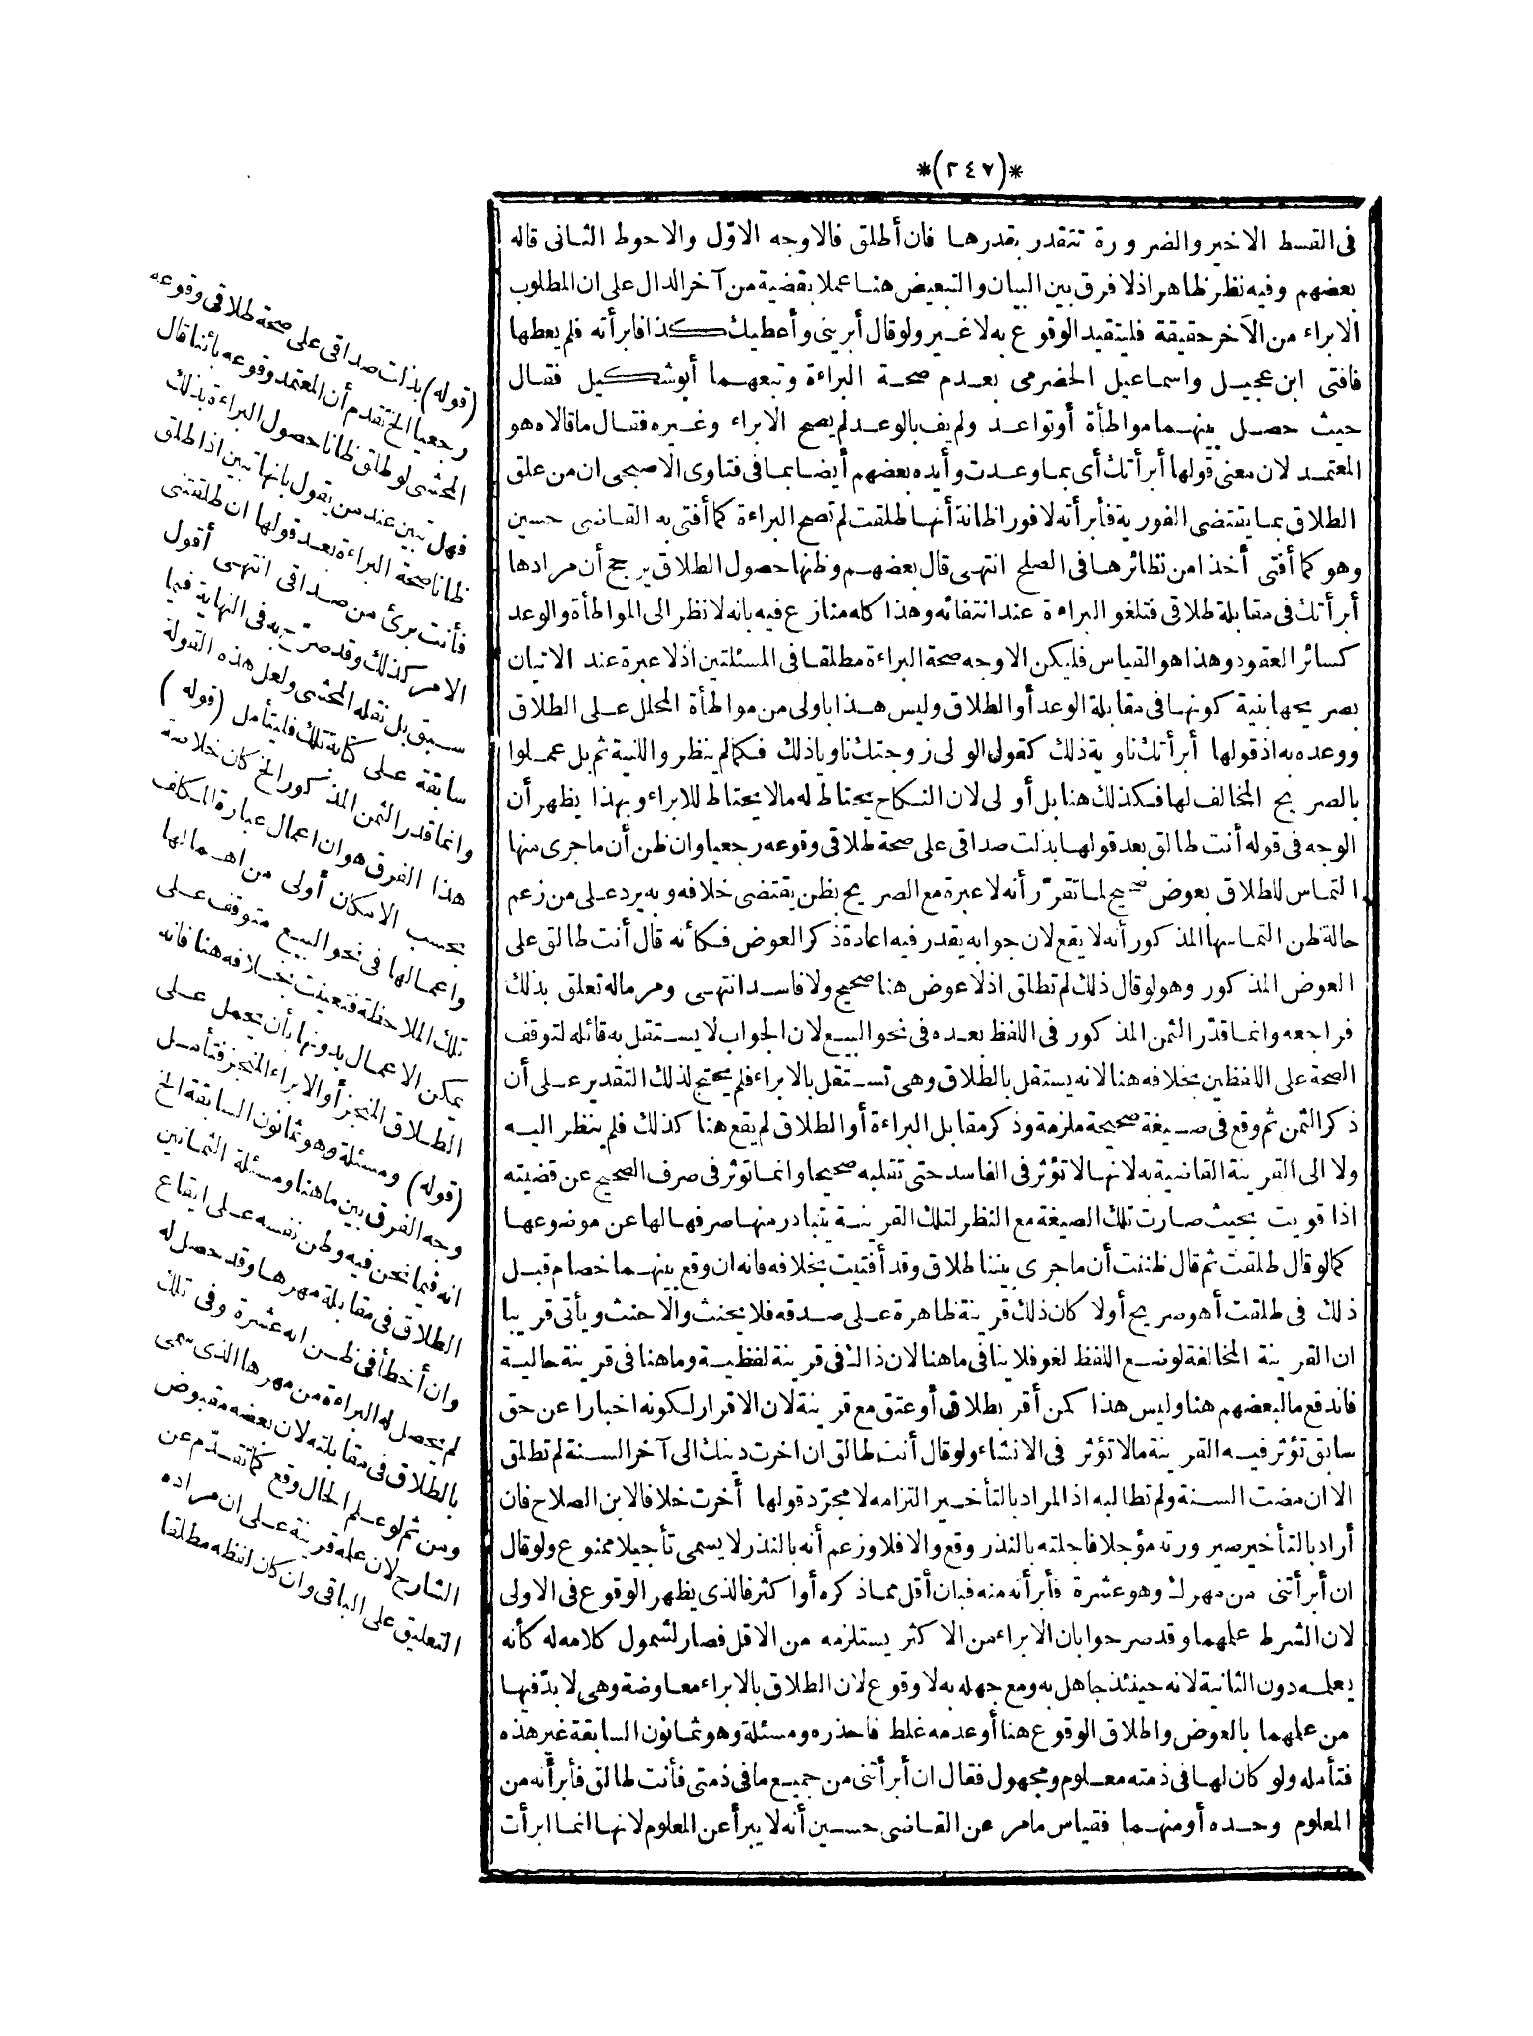 *(٢٤٧)*
فى القسط الاخير والضرورة تتقدر بقدرها فان أطلق فالاوجه الاوّل والاحوط الثانى قاله
بعضهم وفيه نظر ظاهر اذلا فرق بين البيان والتبعيض هنا عملا بقضية من آخر الدال على ان المطلوب
الابراء من الآخر حقيقة فليتقيد الوقوع به لا غير ولو قال أبرينى وأعطيك كذا فابرأته فلم يعطها
فافتى ابن عجيل واسماعيل الحضرمى بعدم صحة البراءة وتبعهما أبو شكيل فقال
حيث حصل بينهما مواطأة أو تواعد ولم يف بالوعد لم يصح الابراء وغيره فقال ما قالاه هو
المعتمد لان معنى قولها أبرأتك أى بما وعدت وأيده بعضهم أيضا بما فى فتاوى الاصبحى ان من علق
الطلاق بما يقتضى الفورية فأبرأته لا فورا ظانة أنها طلقت لم تصح البراءة كما أفتى به القاضى حسين
وهو كما أفتى أخذا من نظائرها فى الصلح انتهى قال بعضهم وظنها حصول الطلاق يرجح أن مرادها
أبرأتك فى مقابلة طلاقى فتلغو البراءة عند انتفائه وهذا كله منازع فيه بانه لا نظر الى المواطأة والوعد
كسائر العقود وهذا هو القياس فليكن الاوجه صحة البراءة مطلقا فى المسئلتين اذلا عبرة عند الاتيان
بصريحها بنية كونها فى مقابلة الوعد أو الطلاق وليس هذا باولى من مواطأة المحلل على الطلاق
ووعده به اذ قولها أبرأتك ناوية ذلك كقول الولى زوجتك ناويا ذلك فكما لم ينظروا للنية ثم بل عملوا
بالصريح المخالف لها فكذلك هنا بل أولى لان النكاح يحتاط له مالا يحتاط للابراء وبهذا يظهر أن
الوجه فى قوله أنت طالق بعد قولها بذلت صداقى على صحة طلاقى وقوعه رجعيا وان ظن أن ماجرى منها
التماس للطلاق بعوض صحيح لما تقرّر أنه لا عبرة مع الصريح بظن يقتضى خلافه وبه يرد على من زعم
حالة ظن التماسها المذكور أنه لا يقع لان جوابه يقدر فيه اعادة ذكر العوض فكأنه قال أنت طالق على
العوض المذكور وهو لو قال ذلك لم تطلق اذلا عوض هنا صحيح ولا فاسد انتهى ومر ماله تعلق بذلك
فراجعه وانما قدّر الثمن المذكور فى اللفظ بعده فى نحو البيع لان الجواب لا يستقل به قائله لتوقف
الصحة على اللفظين بخلافه هنا لانه يستقل بالطلاق وهى تستقل بالابراء فلم يحتج لذلك التقدير على أن
ذكر الثمن ثم وقع فى صيغة صحيحة ملزمة وذكر مقابل البراءة أو الطلاق لم يقع هنا كذلك فلم ينظر اليه
ولا الى القرينة القاضية به لانها لا تؤثر فى الفاسد حتى تقلبه صحيحا وانما تؤثر فى صرف الصحيح عن قضيته
اذا قويت بحيث صارت تلك الصيغة مع النظر لتلك القرينة يتبادر منها صرفها لها عن موضوعها
كما لو قال طلقت ثم قال ظننت أن ما جرى بيننا طلاق وقد أفتيت بخلافه فانه ان وقع بينهما خصام قبل
ذلك فى طلقت أهو صريح أولا كان ذلك قرينة ظاهرة على صدقه فلا يحنث والا حنث ويأتى قريبا
ان القرينة المخالفة لوضع اللفظ لغو فلا ينافى ما هنا لان ذاك فى قرينة لفظية وما هنا فى قرينة حالية
فاندفع ما لبعضهم هنا وليس هذا كمن أقر بطلاق أو عتق مع قرينة لان الاقرار لكونه اخبارا عن حق
سابق تؤثر فيه القرينة مالا تؤثر فى الانشاء ولو قال أنت طالق ان اخرت دينك الى آخر السنة لم تطلق
الا ان مضت السنة ولم تطالبه اذ المراد بالتأخير التزامه لا مجرّد قولها أخرت خلافا لابن الصلاح فان
أراد بالتأخير صيرورته مؤجلا فاجلته بالنذر وقع والا فلا وزعم أنه بالنذر لا يسمى تأجيلا ممنوع ولو قال
ان أبرأتنى من مهرك وهو عشرة فأبرأته منه فبان أقل مما ذكره أو اكثر فالذى يظهر الوقوع فى الاولى
لان الشرط علمهما وقد صرحوا بان الابراء من الاكثر يستلزمه من الاقل فصار لشمول كلامه له كأنه
يعلمه دون الثانية لانه حينئذ جاهل به ومع جهله به لا وقوع لان الطلاق بالابراء معاوضة وهى لا بدّ فيها
من علمهما بالعوض واطلاق الوقوع هنا أو عدمه غلط فاحذره ومسئلة وهو ثمانون السابقة غير هذه
فتأمله ولو كان لها فى ذمته معلوم ومجهول فقال ان أبرأتنى من جميع ما فى ذمتى فأنت طالق فأبرأته من
المعلوم وحده أو منهما فقياس ما مر عن القاضى حسين أنه لا يبرأ عن المعلوم لانها انما ابرأت
(قوله) بذلت صداقى على صحة طلاقى وقوعه
رجعيا الخ تقدم أن المعتمد وقوعه بائنا قال
المحشى لو طلق ظانا حصول البراءة بذلك
فهل تبين عند من يقول بانها تبين اذا طلق
ظانا صحة البراءة بعد قولها ان طلقتنى
فأنت برئ من صداقى انتهى أقول
الامر كذلك وقد صرّح به فى النهاية فيما
سبق بل نقله المحشى ولعل هذه القولة
سابقة على كتابة تلك فليتأمل (قوله)
وانما قدر الثمن المذكور الخ كان خلاصة
هذا الفرق هو ان اعمال عبارة المكلف
بحسب الامكان أولى من اهمالها
واعمالها فى نحو البيع متوقف على
تلك الملاحظة فتعينت بخلافه هنا فانه
يمكن الاعمال بدونها بأن يحمل على
الطلاق المنجز أو الابراء المنجز فتأمل
(قوله) ومسئلة وهو ثمانون السابقة الخ
وجه الفرق بين ما هنا ومسئلة الثمانين
انه فيما نحن فيه وطن نفسه على ايقاع
الطلاق فى مقابلة مهرها وقد حصل له
وان أخطأ فى ظن انه عشرة وفى تلك
لم يحصل له البراءة من مهرها الذى سمى
بالطلاق فى مقابلته لان بعضه مقبوض
ومن ثم لو علم الحال وقع كما تقدّم عن
الشارح لان علمه قرينة على ان مراده
التعليق على الباقى وان كان لفظه مطلقا